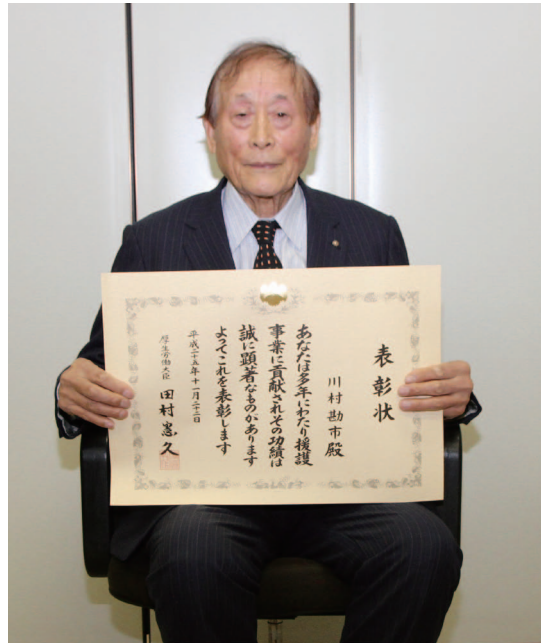 表彰状
川村勘市殿
あなたは多年にわたり援護
事業に貢献されその功績は
誠に顕著なものがあります
よってこれを表彰します
平成二十五年十一月二十二日
厚生労働大臣 田村憲久